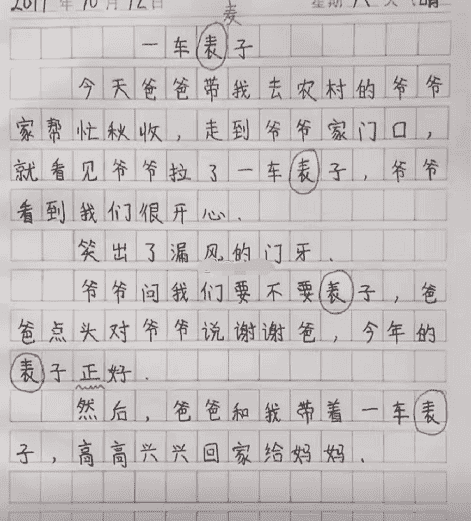 2017年10月12日 星期六 天气晴
麦
一车表子
今天爸爸带我去农村的爷爷
家帮忙秋收，走到爷爷家门口，
就看见爷爷拉了一车表子，爷爷
看到我们很开心．
笑出了漏风的门牙．
爷爷问我们要不要表子，爸
爸点头对爷爷说谢谢爸，今年的
表子正好．
然后，爸爸和我带着一车表
子，高高兴兴回家给妈妈．